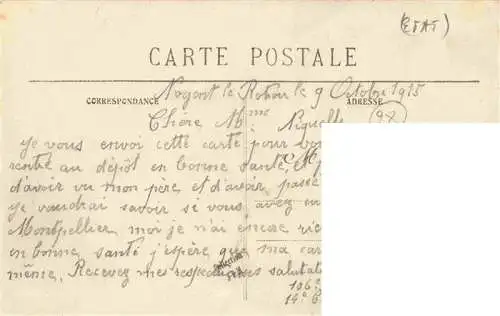 (ETAT)
CARTE POSTALE
CORRESPONDANCE
ADRESSE
Nogent le Rotrou le 9 Octobre 1915
Chère Mme
(98)
Je vous envoi cette carte pour
rentré au dépôt en bonne santé, et
d'avoir vu mon père, et d'avoir passé
je vaudrai savoir si vous avez
Montpellier, moi je n'ai encore
en bonne santé j'espère que ma
même. Recevez mes respectueuses
106e
14e